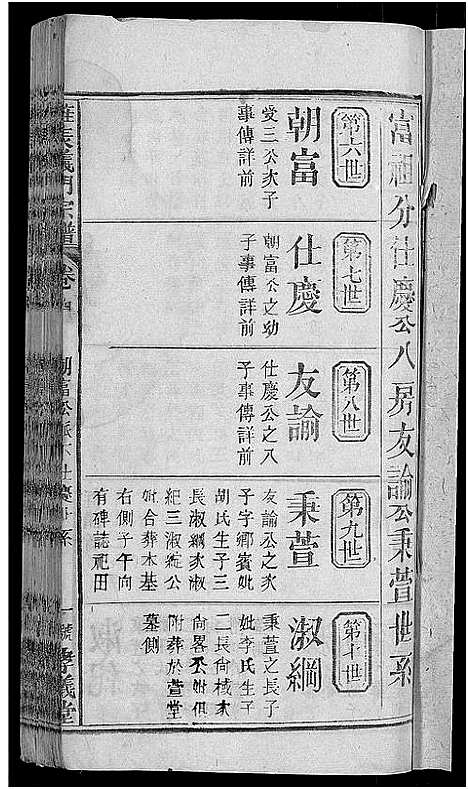 富祖分仕慶公八房友諭公秉萱世系
第六世
朝富
愛三公次子
事傳詳前
第七世
仕慶
朝富公之幼
子事傳詳前
第八世
友諭
仕慶公之八
子事傳詳前
第九世
秉萱
友諭公之次
子字鄉賓妣
胡氏生子三
長淑綱次淑
紀三淑綻公
妣合葬木基
右側子午向
有碑誌祀田
第十世
淑綱
秉萱之長子
妣李氏生子
二長尙棫次
尙畧公妣俱
附葬於萱堂
墓側
義門宗譜
卷
朝富公派下仕慶世系
孝義堂